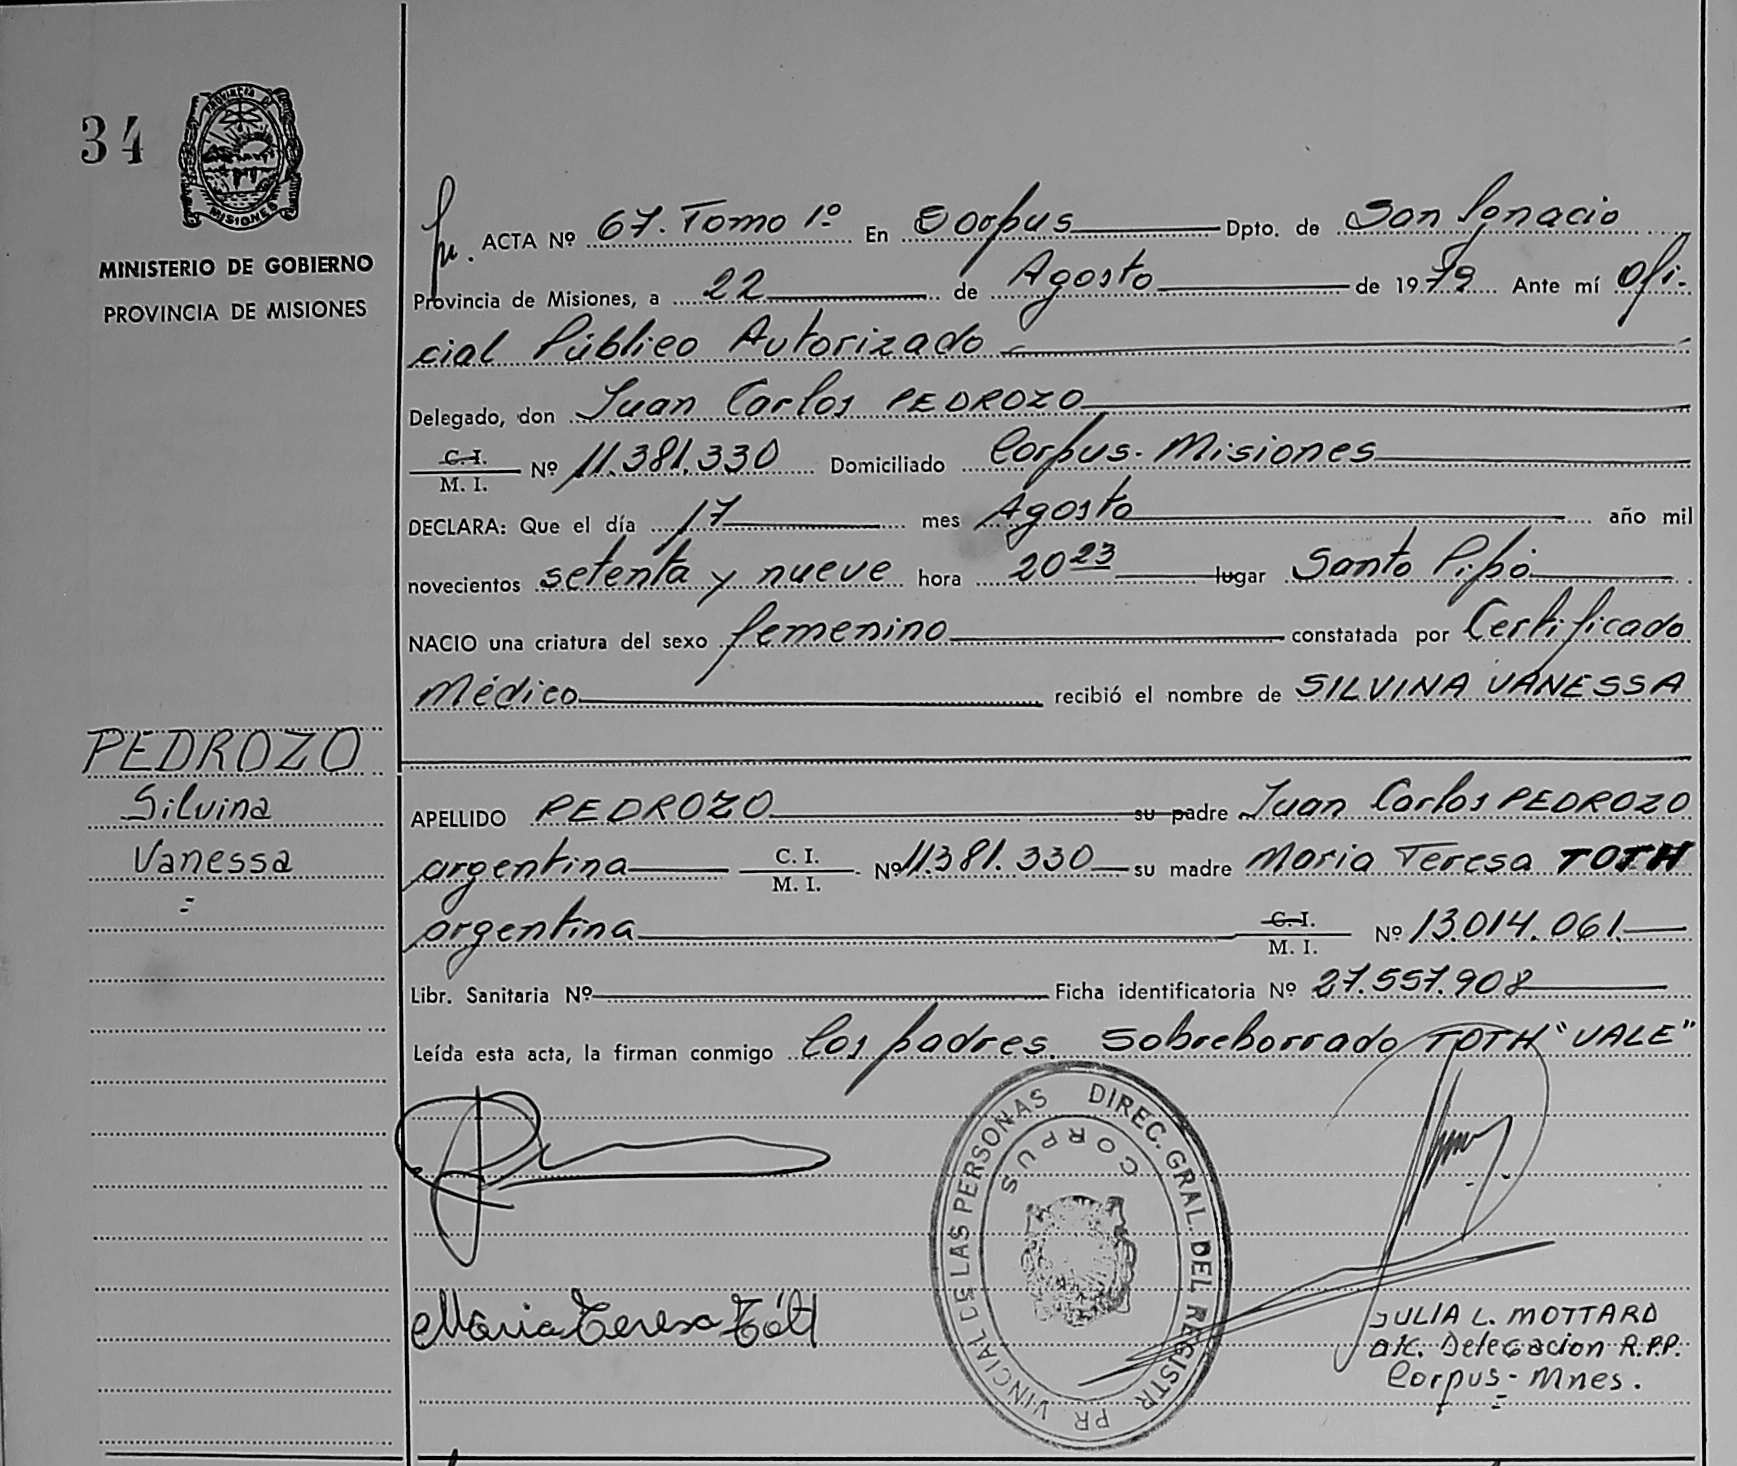 34
PROVINCIA DE
MISIONES
MINISTERIO DE GOBIERNO
PROVINCIA DE MISIONES
ACTA Nº 67. Tomo 1º En Corpus Dpto. de San Ignacio
Provincia de Misiones, a 22 de Agosto de 1979 Ante mí Ofi-
cial Público Autorizado
Delegado, don Juan Carlos PEDROZO
C. I. / M. I. Nº 11.381.330 Domiciliado Corpus - Misiones
DECLARA: Que el día 17 mes Agosto año mil
novecientos setenta y nueve hora 20 23 lugar Santo Pipó
NACIO una criatura del sexo femenino constatada por Certificado
Médico recibió el nombre de SILVINA VANESSA
PEDROZO
Silvina
Vanessa
APELLIDO PEDROZO su padre Juan Carlos PEDROZO
argentina C. I. / M. I. Nº 11.381.330 su madre Maria Teresa TOTH
argentina C. I. / M. I. Nº 13.014.061
Libr. Sanitaria Nº Ficha identificatoria Nº 27.557.908
Leída esta acta, la firman conmigo los padres. Sobreborrado TOTH "VALE"
DIREC. GRAL. DEL REGISTR PR VINCIAL DE LAS PERSONAS
CORPUS
Maria Teresa Tóth
JULIA L. MOTTARD
atc. Delegacion R.P.P.
Corpus - Mnes.